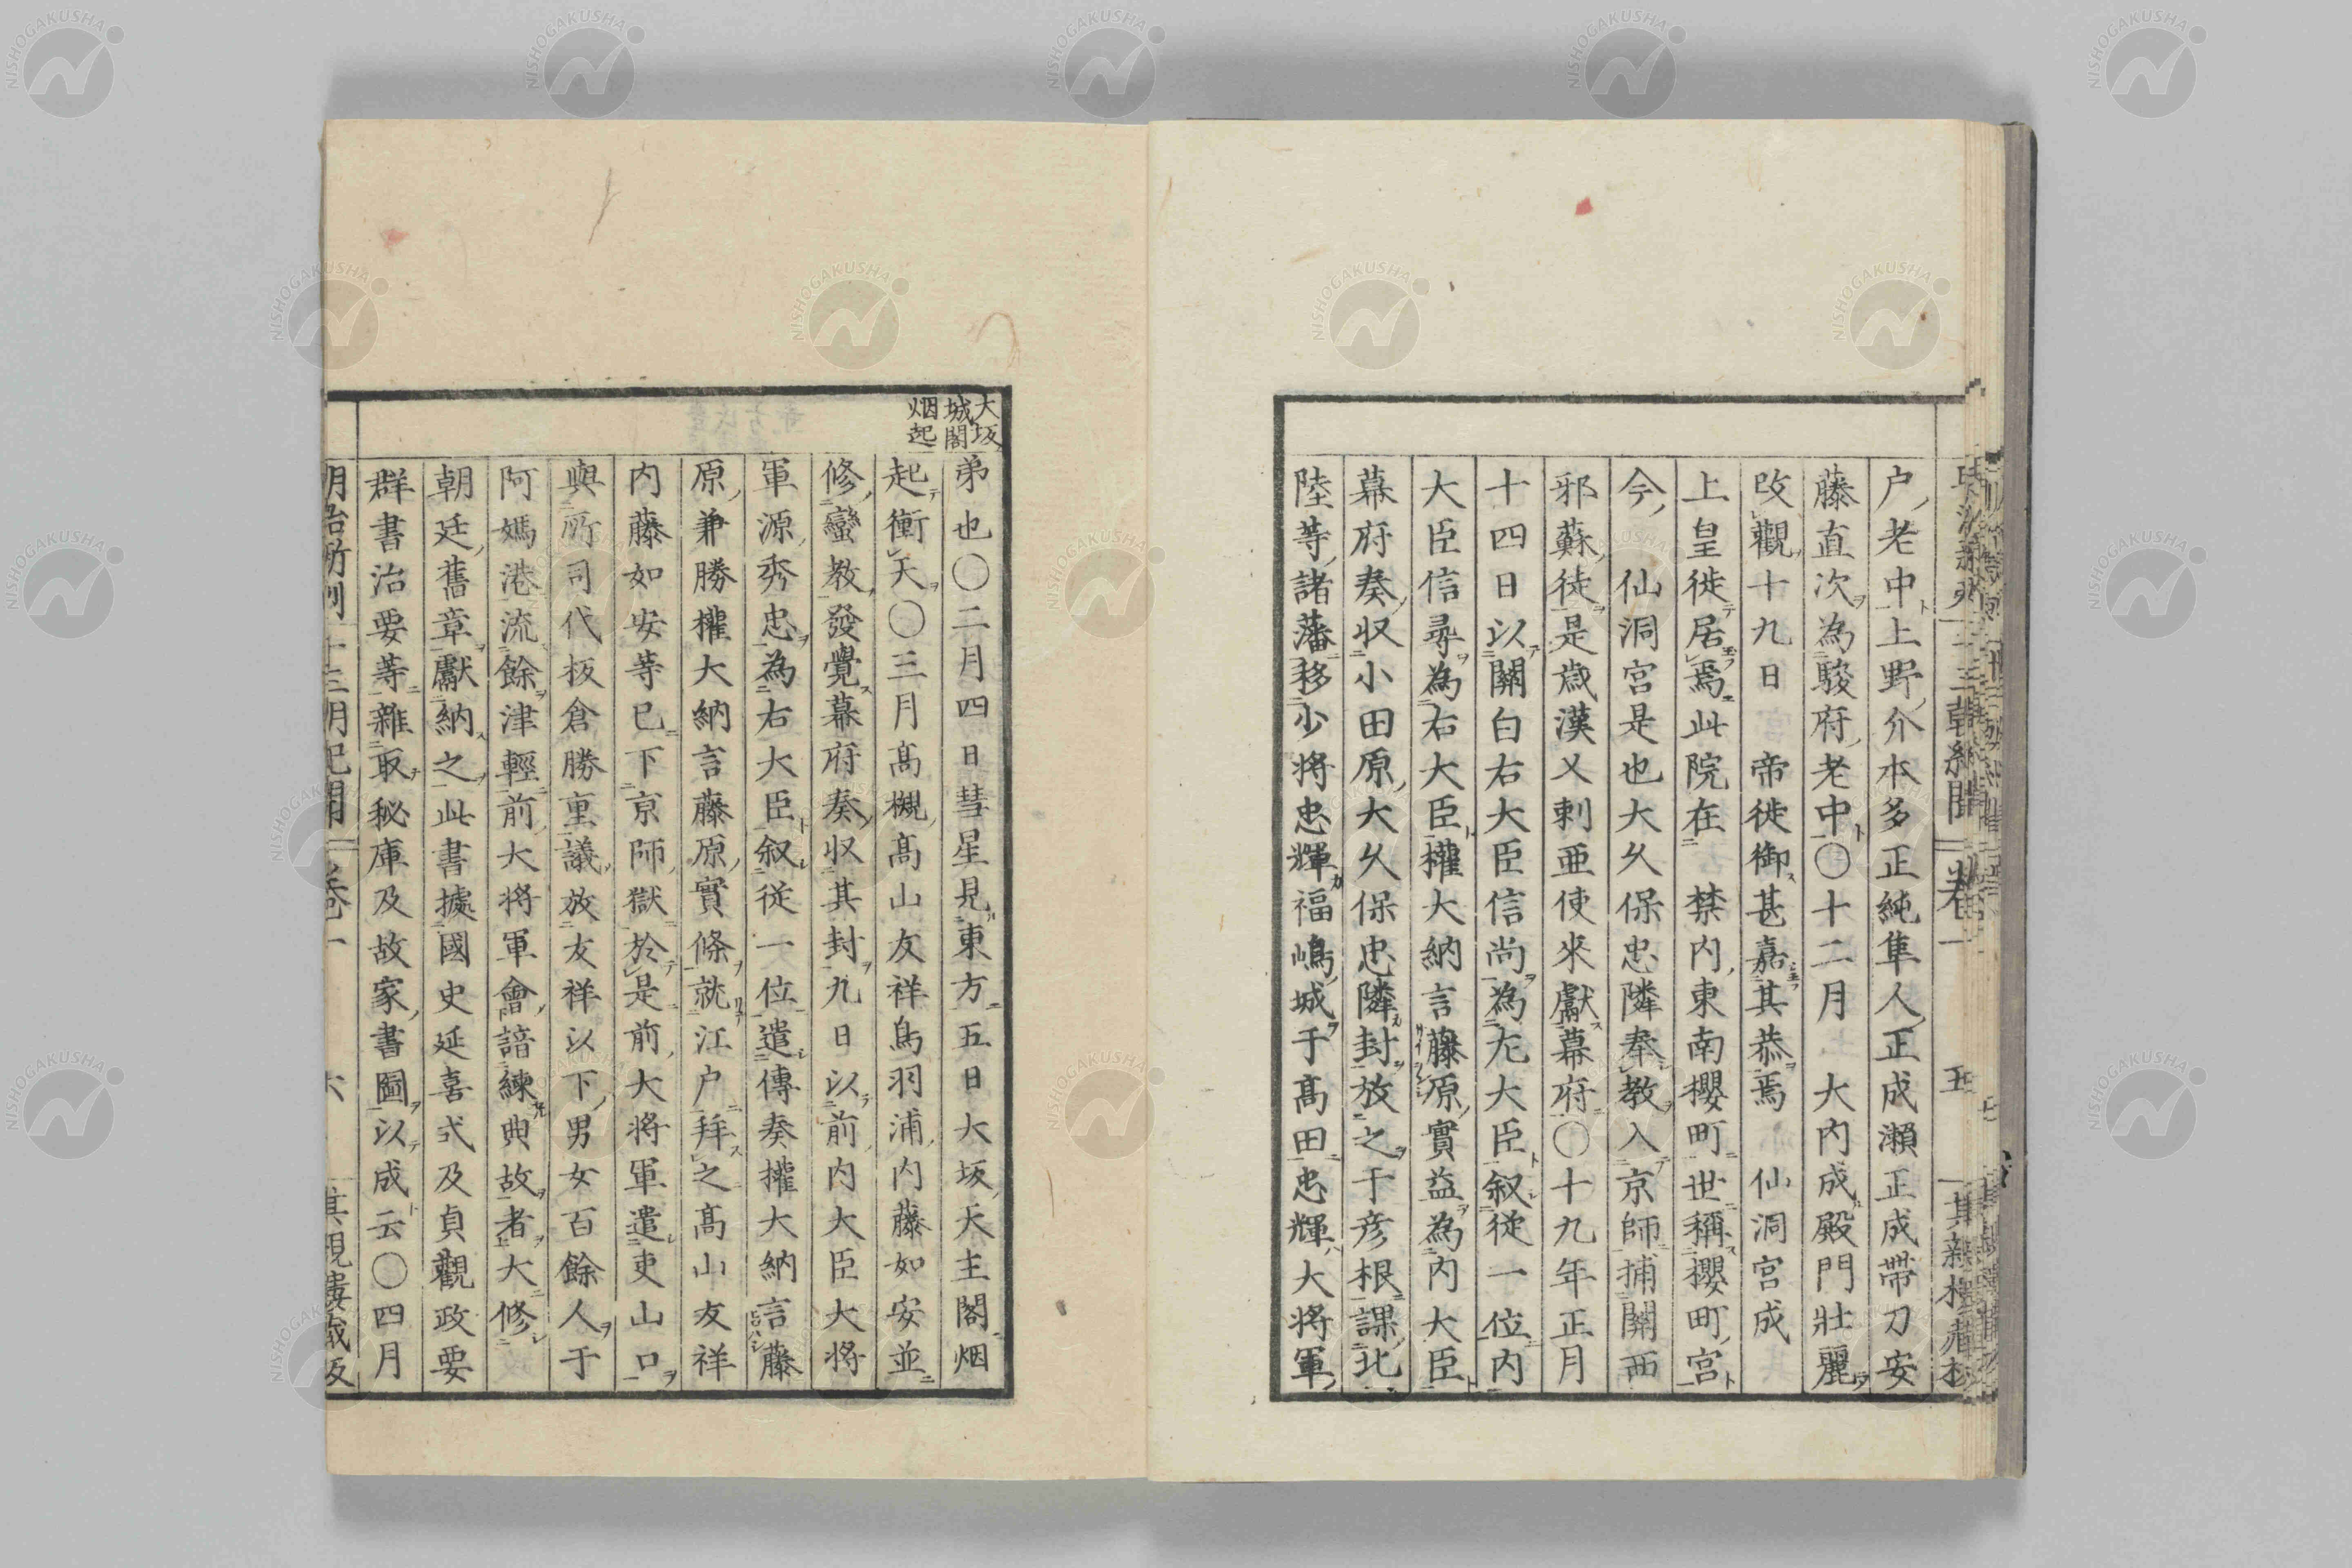 户老中上野介本多正純隼人正成瀬正成帶刀安
藤直次為駿府老中〇十二月 大内成殿門壯麗
改觀十九日 帝徙御甚嘉其恭焉 仙洞宮成
上皇徙居焉此院在 禁内東南櫻町世稱櫻町宮
今 仙洞宮是也大久保忠隣奉教入京師捕關西
邪蘇徒是歳漢乂剌亜使來獻幕府〇十九年正月
十四日以關白右大臣信尚為左大臣叙從一位内
大臣信尋為右大臣權大納言藤原實益為内大臣
幕府奏収小田原大久保忠隣封放之于彦根課北
陸等諸藩移少将忠輝福嶋城于髙田忠輝大将軍
大坂
城閣
烟起
弟也〇二月四日彗星見東方五日大坂天主閣烟
起衝天〇三月髙槻髙山友祥鳥羽浦内藤如安並
修蠻教發覺幕府奏収其封九日以前内大臣大将
軍源秀忠為右大臣叙從一位遣傳奏權大納言藤
原兼勝權大納言藤原實條就江户拜之髙山友祥
内藤如安等已下京師獄於是前大将軍遣吏山口
與所司代板倉勝重議放友祥以下男女百餘人于
阿媽港流餘津輕前大将軍會諳練典故者大修
朝廷舊章獻納之此書據國史延喜式及貞觀政要
群書治要等雜取秘庫及故家書圖以成云〇四月